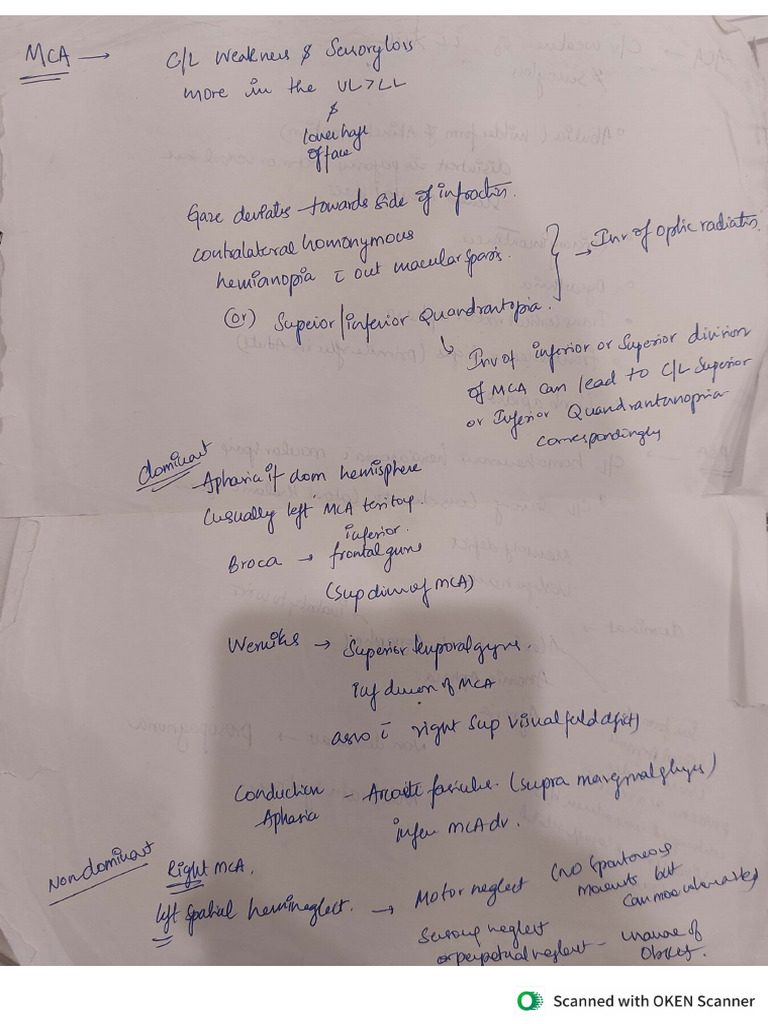 MCA → C/L Weakness & Sensory loss
more in the UL>LL
&
lower half
of face
Gaze deviates towards side of infarction.
contralateral homonymous
hemianopia c̄ out macular sparing.
→ Inv of optic radiation.
(or) Superior/inferior Quandrantopia.
↳ Inv of inferior or Superior division
of MCA can lead to C/L Superior
or Inferior Quandrantanopria
correspondingly
dominant
Aphasia if dom hemisphere
(usually left MCA territory.
inferior.
Broca → frontal gyrus
(Sup divn of MCA)
→ Superior temporal gyrus.
Inf divison of MCA
asso c̄ right Sup visual field defect)
Conduction - Arcuate fasiculus. (supra marginal ghyus)
Aphasia
infer MCA dv.
Non dominant
Right MCA.
left spatial hemineglect. → Motor neglect (no spontaneous
movements but
can move when asked
Sensory neglect
or perpetual neglect - unaware of
Objects.
Scanned with OKEN Scanner